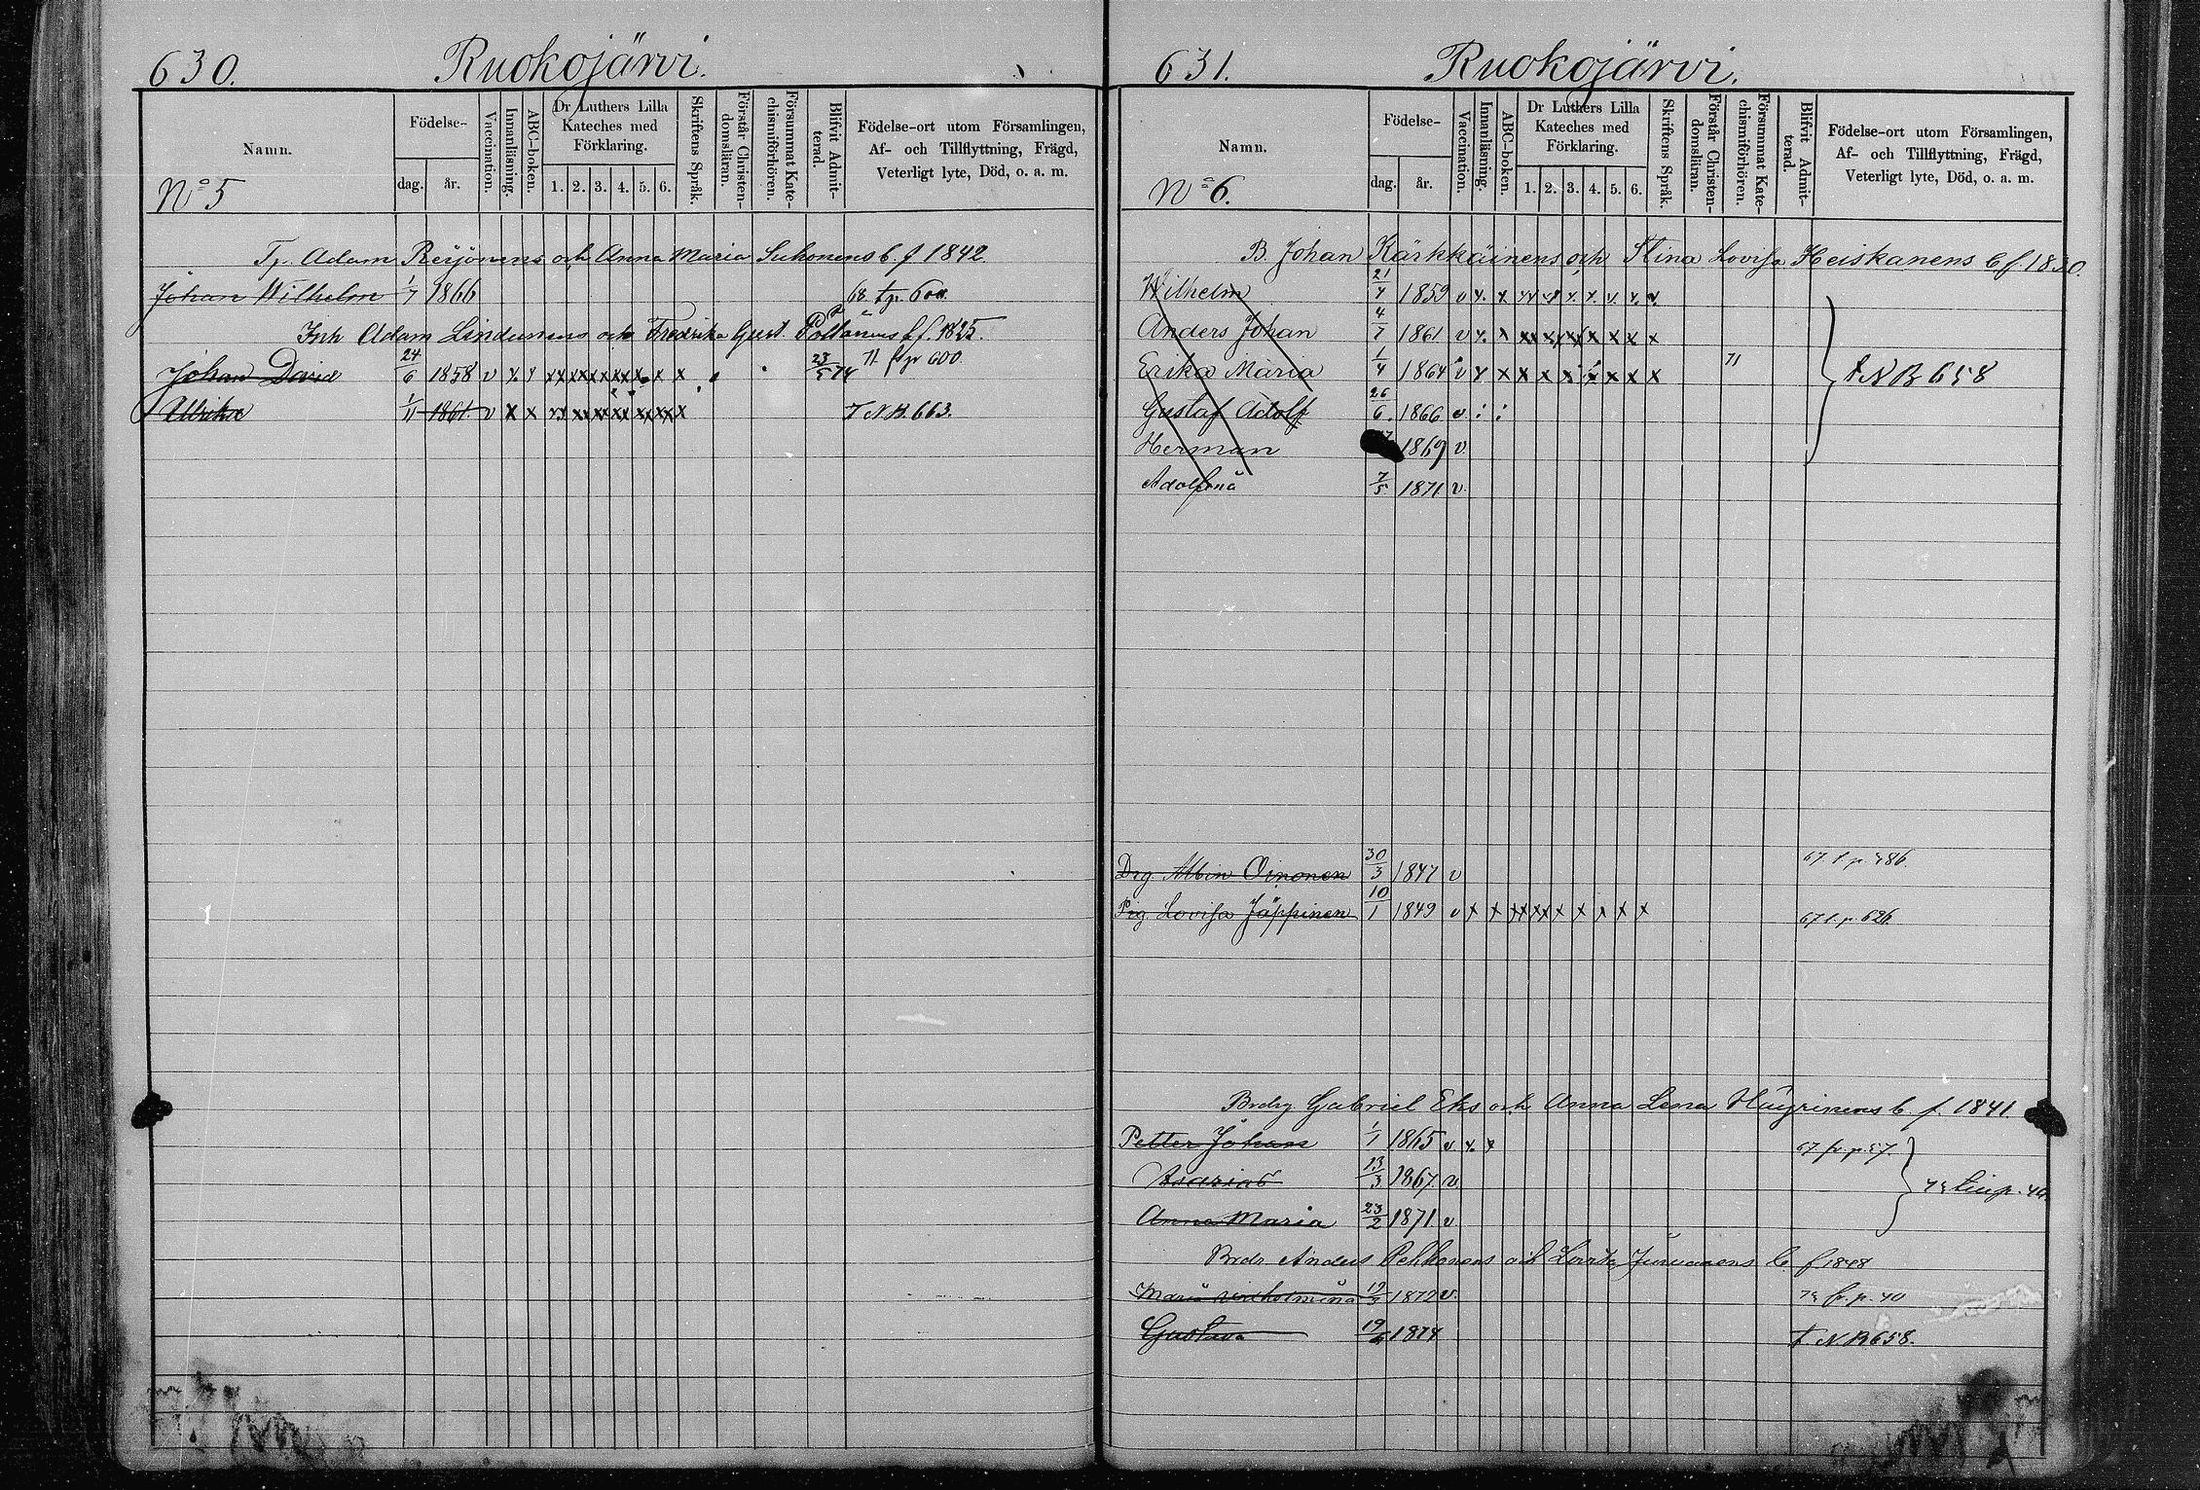 630. Ruokojärvi.
Namn.
Födelse-
dag. år.
Vaccination.
Innanläsning.
ABC-boken.
Dr Luthers Lilla
Kateches med
Förklaring.
1. 2. 3. 4. 5. 6.
Skriftens Språk.
Förstår Christen-
domsläran.
Försummat Kate-
chismiförhören.
Blifvit Admit-
terad.
Födelse-ort utom Församlingen,
Af- och Tillflyttning, Frägd,
Veterligt lyte, Död, o. a. m.
No 5
Tp. Adam Reijonens och Anna Maria Suhonens b. f 1842
Johan Wilhelm 1/7 1866 68 tp. 600.
Inh Adam Lindunens och Fredrika Gust. b. f. 1825.
71 600
Johan David 24/6 1858 v x x x x x x x x x x 23/5 74
Ulrika 1/11 1861 v x x x x x x x x x x T N B. 663.
631. Ruokojärvi.
Namn.
Födelse-
dag. år.
Vaccination.
Innanläsning.
ABC-boken.
Dr Luthers Lilla
Kateches med
Förklaring.
1. 2. 3. 4. 5. 6.
Skriftens Språk.
Förstår Christen-
domsläran.
Försummat Kate-
chismiförhören.
Blifvit Admit-
terad.
Födelse-ort utom Församlingen,
Af- och Tillflyttning, Frägd,
Veterligt lyte, Död, o. a. m.
No 6.
B. Johan Kärkkäinens och Stina Lovisa Heiskanens b f 1830.
Wilhelm 21/4 1859 v x x x x x x x x x
Anders Johan 4/7 1861 v x x x x x x x x x
Erika Maria 1/4 1864 v x x x x x x x x x 71 t. N B 658
Gustaf Adolf 26/6 1866 v
Herman 1869 v
Adolfina 7/5 1871 v.
Drg. Albin Oinonen 30/3 1847 v 67. t. p. 486
Pig. Lovisa Jäppinen 10/1 1849 v x x x x x x x x x 67 t. p. 626
Brdrg Gabriel Eks och Anna Lena Häyrinens b. f. 1841
Petter Johan 1/1 1865 v x x 67 fr. p. 57.
Asarias 13/3 1867 v
Anna Maria 23/2 1871 v
Brdr Anders Pekkonens och b f 1848
Maria Wilhelmina 1872 v. fr. p. 40
Gustava 1874 T. N. B. 658.